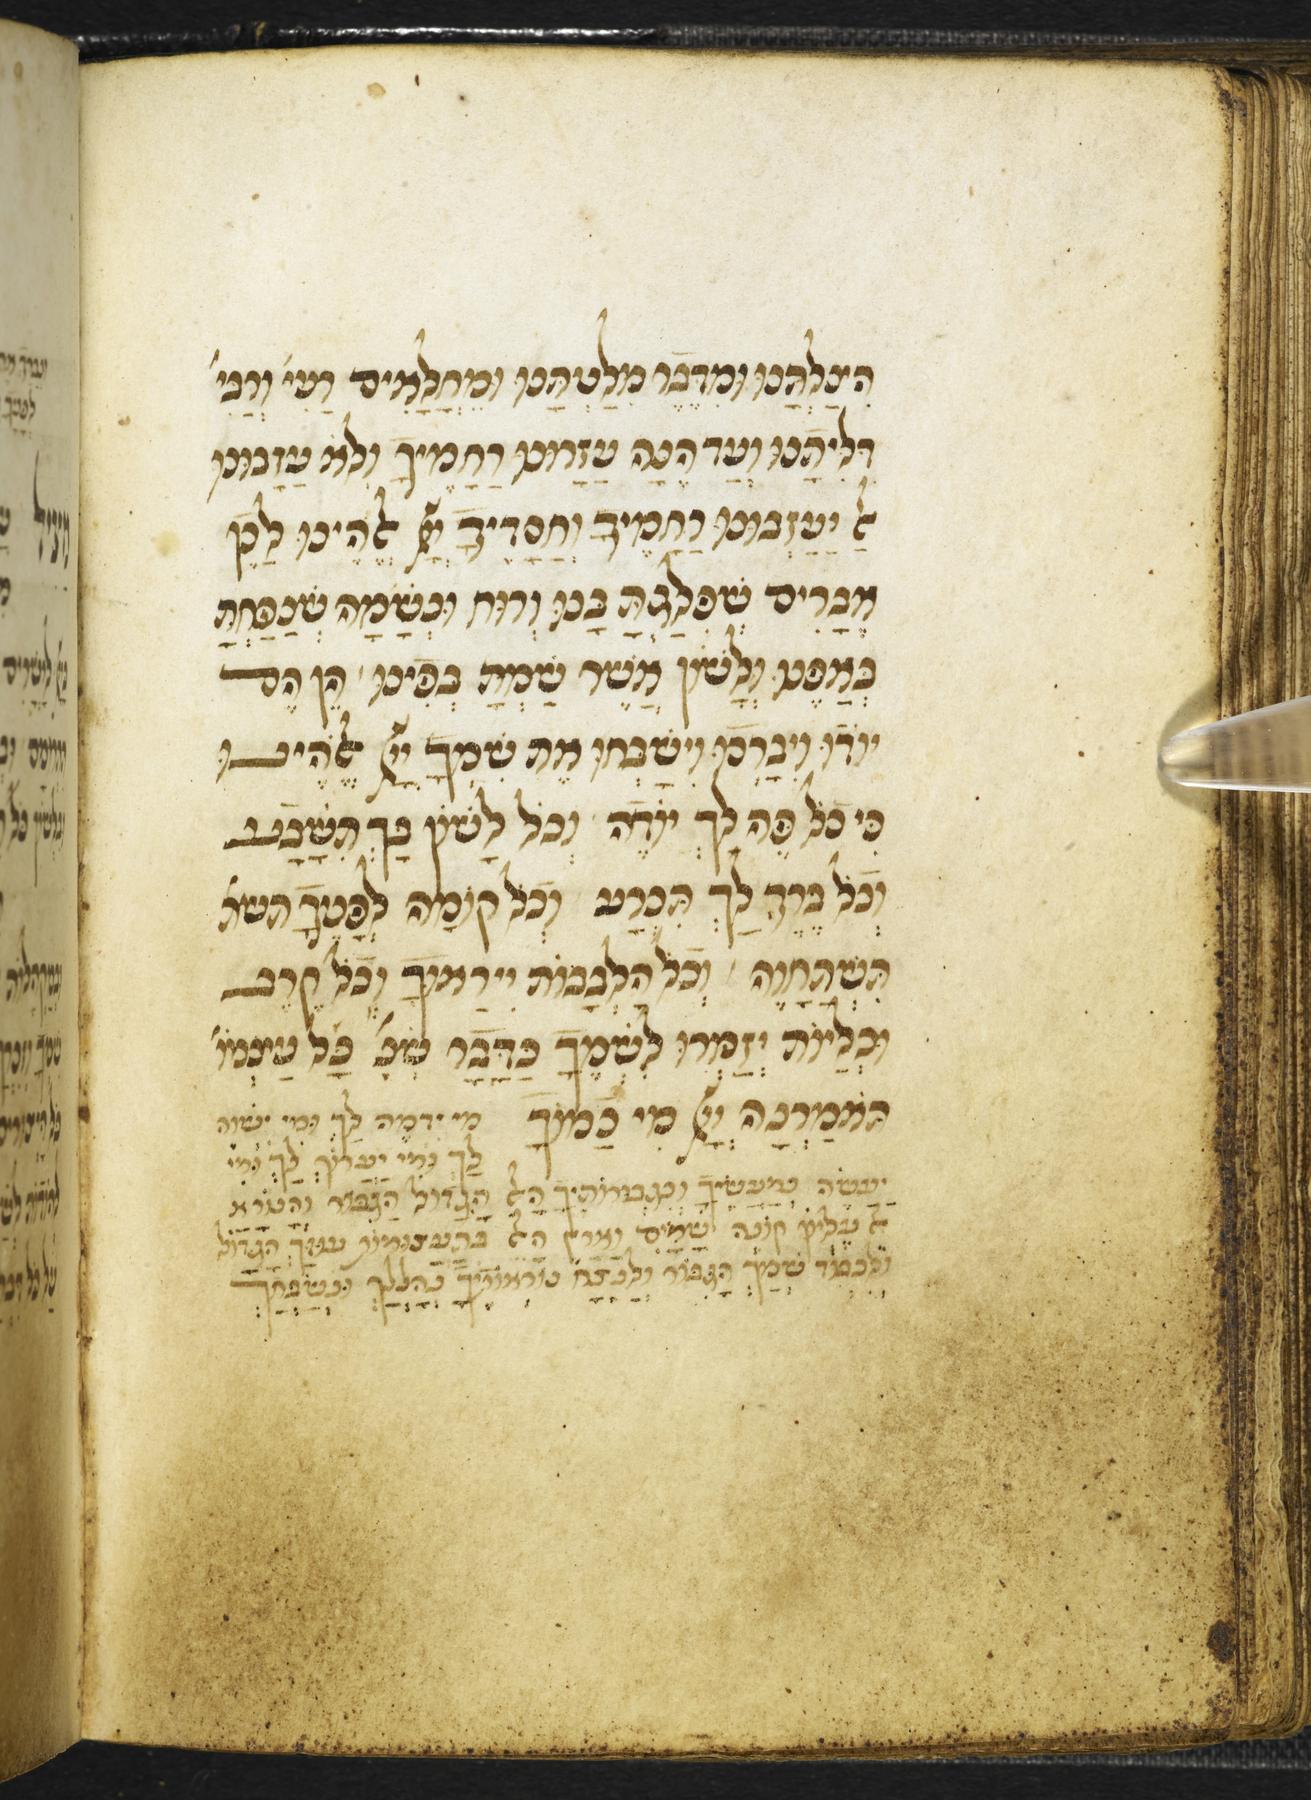 הִצַּלְתָּנוּ וּמִדֶּבֶר מִלַּטְתָּנוּ וּמֵחֳלָאִים רָעִי׳ וְרַבִּי׳
דִּלִּיתָנוּ וְעַד הֵנָּה עֲזָרוּנוּ רַחֲמֶיךָ וְלֹא עֲזָבוּנוּ
אַל יַעַזְבוּנוּ רַחֲמֶיךָ וַחֲסָדֶיךָ יְיָ אֱלֹהֵינוּ לָכֵן
אֵבָרִים שֶׁפִּלַּגְתָּ בָּנוּ וְרוּחַ וּנְשָׁמָה שֶׁנָּפַחְתָּ
בְּאַפֵּינוּ וְלָשׁוֹן אֲשֶׁר שַׂמְתָּ בְּפִינוּ הֵן הֵם
יוֹדוּ וִיבָרְכוּ וִישַׁבְּחוּ אֶת שִׁמְךָ יְיָ אֱלֹהֵינוּ
כִּי כָל פֶּה לְךָ יוֹדֶה וְכָל לָשׁוֹן לְךָ תִשָּׁבַע
וְכָל בֶּרֶךְ לְךָ תִכְרַע וְכָל קוֹמָה לְפָנֶיךָ תשת
תִּשְׁתַּחֲוֶה וְכָל הַלְּבָבוֹת יִירָאוּךָ וְכָל קֶרֶב
וּכְלָיוֹת יְזַמְּרוּ לִשְׁמֶךָ כַּדָּבָר שֶׁנֶּ׳ כָּל עַצְמוֹ׳
תֹּאמַרְנָה יְיָ מִי כָמוֹךָ מִי יִדְמֶה לָּךְ וּמִי יִשְׁוֶה
לָּךְ וּמִי יַעֲרוֹךְ לָךְ וּמִי
יַעֲשֶׂה כְמַעֲשֶׂיךָ וְכִגְבוּרוֹתֶיךָ הָאֵל הַגָּדוֹל הַגִּבּוֹר וְהַנּוֹרָא
אֵל עֶלְיוֹן קוֹנֵה שָׁמַיִם וָאָרֶץ הָאֵל בְּתַעֲצֻמוֹת עֻזֶּךָ הַגָּדוֹל
וּלִכְבוֹד שִׁמְךָ הַגִּבּוֹר וְלָנֶצַח נוֹרְאוֹתֶיךָ נְהַלֶּלְךָ וּנְשַׁבֵּחֲךָ